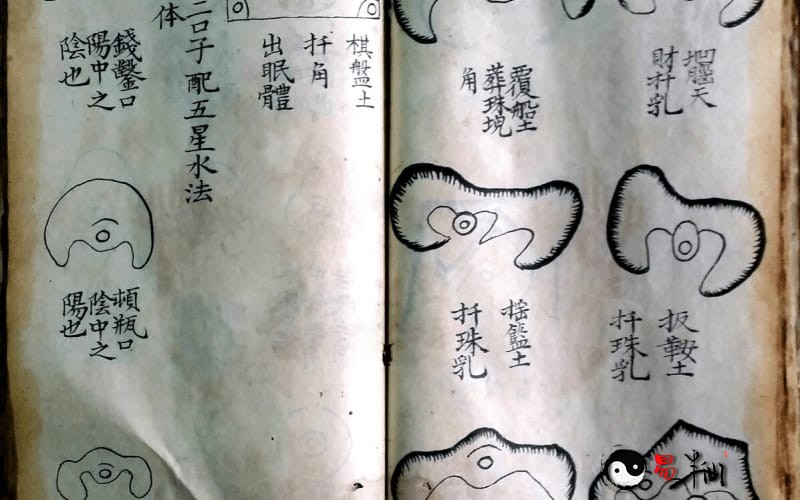 財扦乳
覆船土
葬珠塊
角
扳鞍土
扦珠乳
搖籃土
扦珠乳
棋盤土
扦角
出眠體
二口子配五星水法
体
錢鏨口
陽中之
陰也
頓瓶口
陰中之
陽也
易